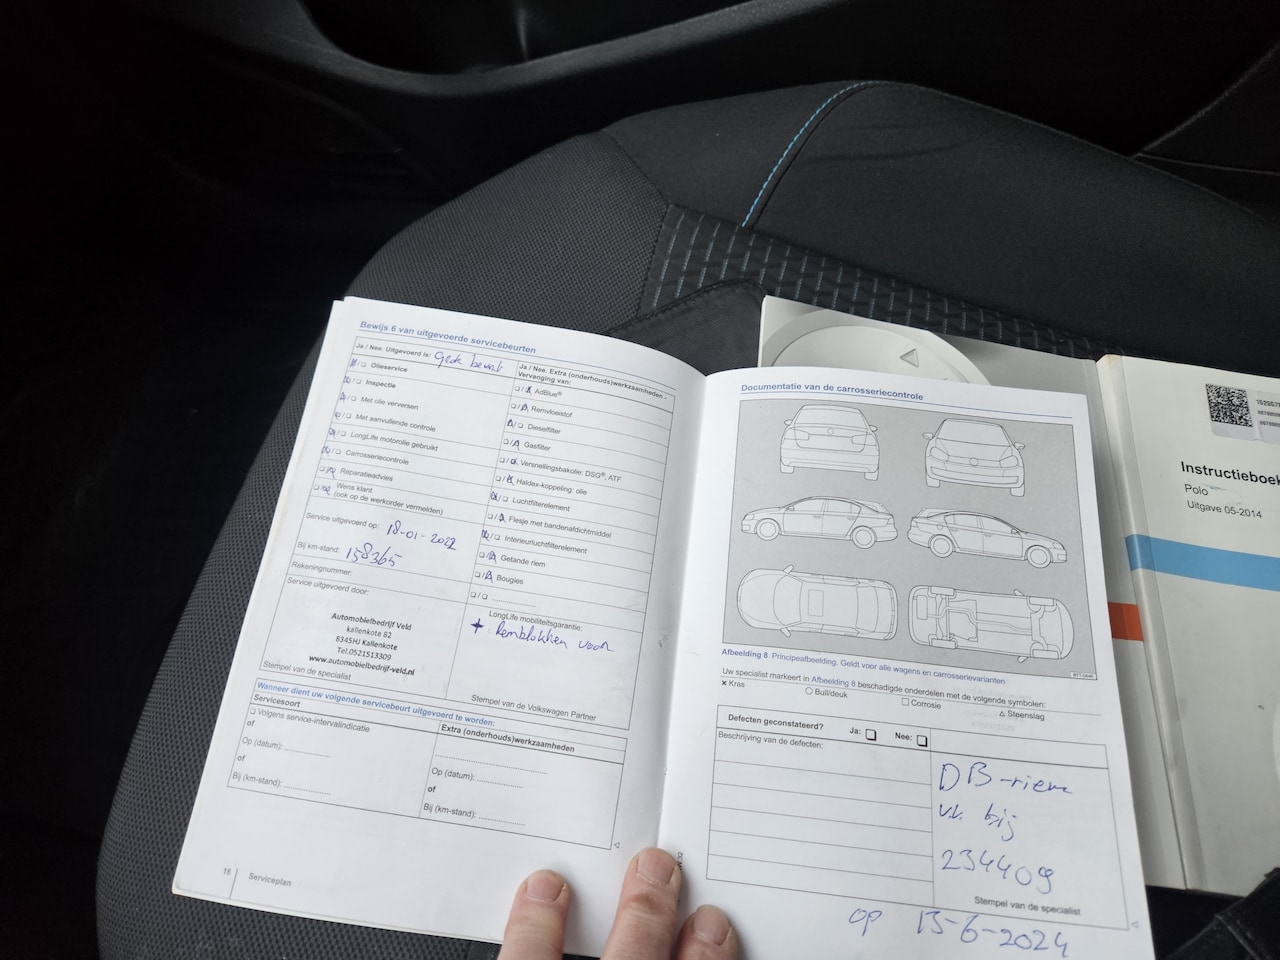 Bewijs 6 van uitgevoerde servicebeurten
Ja / Nee. Uitgevoerd is:
Olieservice
Inspectie
Met olie verversen
Met aanvullende controle
LongLife motorolie gebruikt
Carrosseriecontrole
Reparatieadvies
Wens klant
(ook op de werkorder vermelden)
Service uitgevoerd op: 18-01-2022
Bij km-stand: 158365
Rekeningnummer:
Service uitgevoerd door:
Automobielbedrijf Veld
kallenkote 82
8345HJ Kallenkote
Tel.0521513309
www.automobielbedrijf-veld.nl
Stempel van de specialist
Ja / Nee. Extra (onderhouds)werkzaamheden -
Vervanging van:
AdBlue®
Remvloeistof
Dieselfilter
Gasfilter
Versnellingsbakolie: DSG®, ATF
Haldex-koppeling: olie
Luchtfilterelement
Flesje met bandenafdichtmiddel
Interieurluchtfilterelement
Getande riem
Bougies
LongLife mobiliteitsgarantie:
+ Remblokken voor
Stempel van de Volkswagen Partner
Wanneer dient uw volgende servicebeurt uitgevoerd te worden:
Servicesoort
Volgens service-intervalindicatie
of
Op (datum):
of
Bij (km-stand):
Extra (onderhouds)werkzaamheden
Op (datum):
of
Bij (km-stand):
16 Serviceplan
Documentatie van de carrosseriecontrole
Afbeelding 8 Principeafbeelding. Geldt voor alle wagens en carrosserievarianten
Uw specialist markeert in Afbeelding 8 beschadigde onderdelen met de volgende symbolen:
× Kras
Buil/deuk
Corrosie
Steenslag
Defecten geconstateerd? Ja: Nee:
Beschrijving van de defecten:
DB-riem
v.v. bij
234409
Stempel van de specialist
op 13-6-2024
Instructieboek
Polo
Uitgave 05-2014